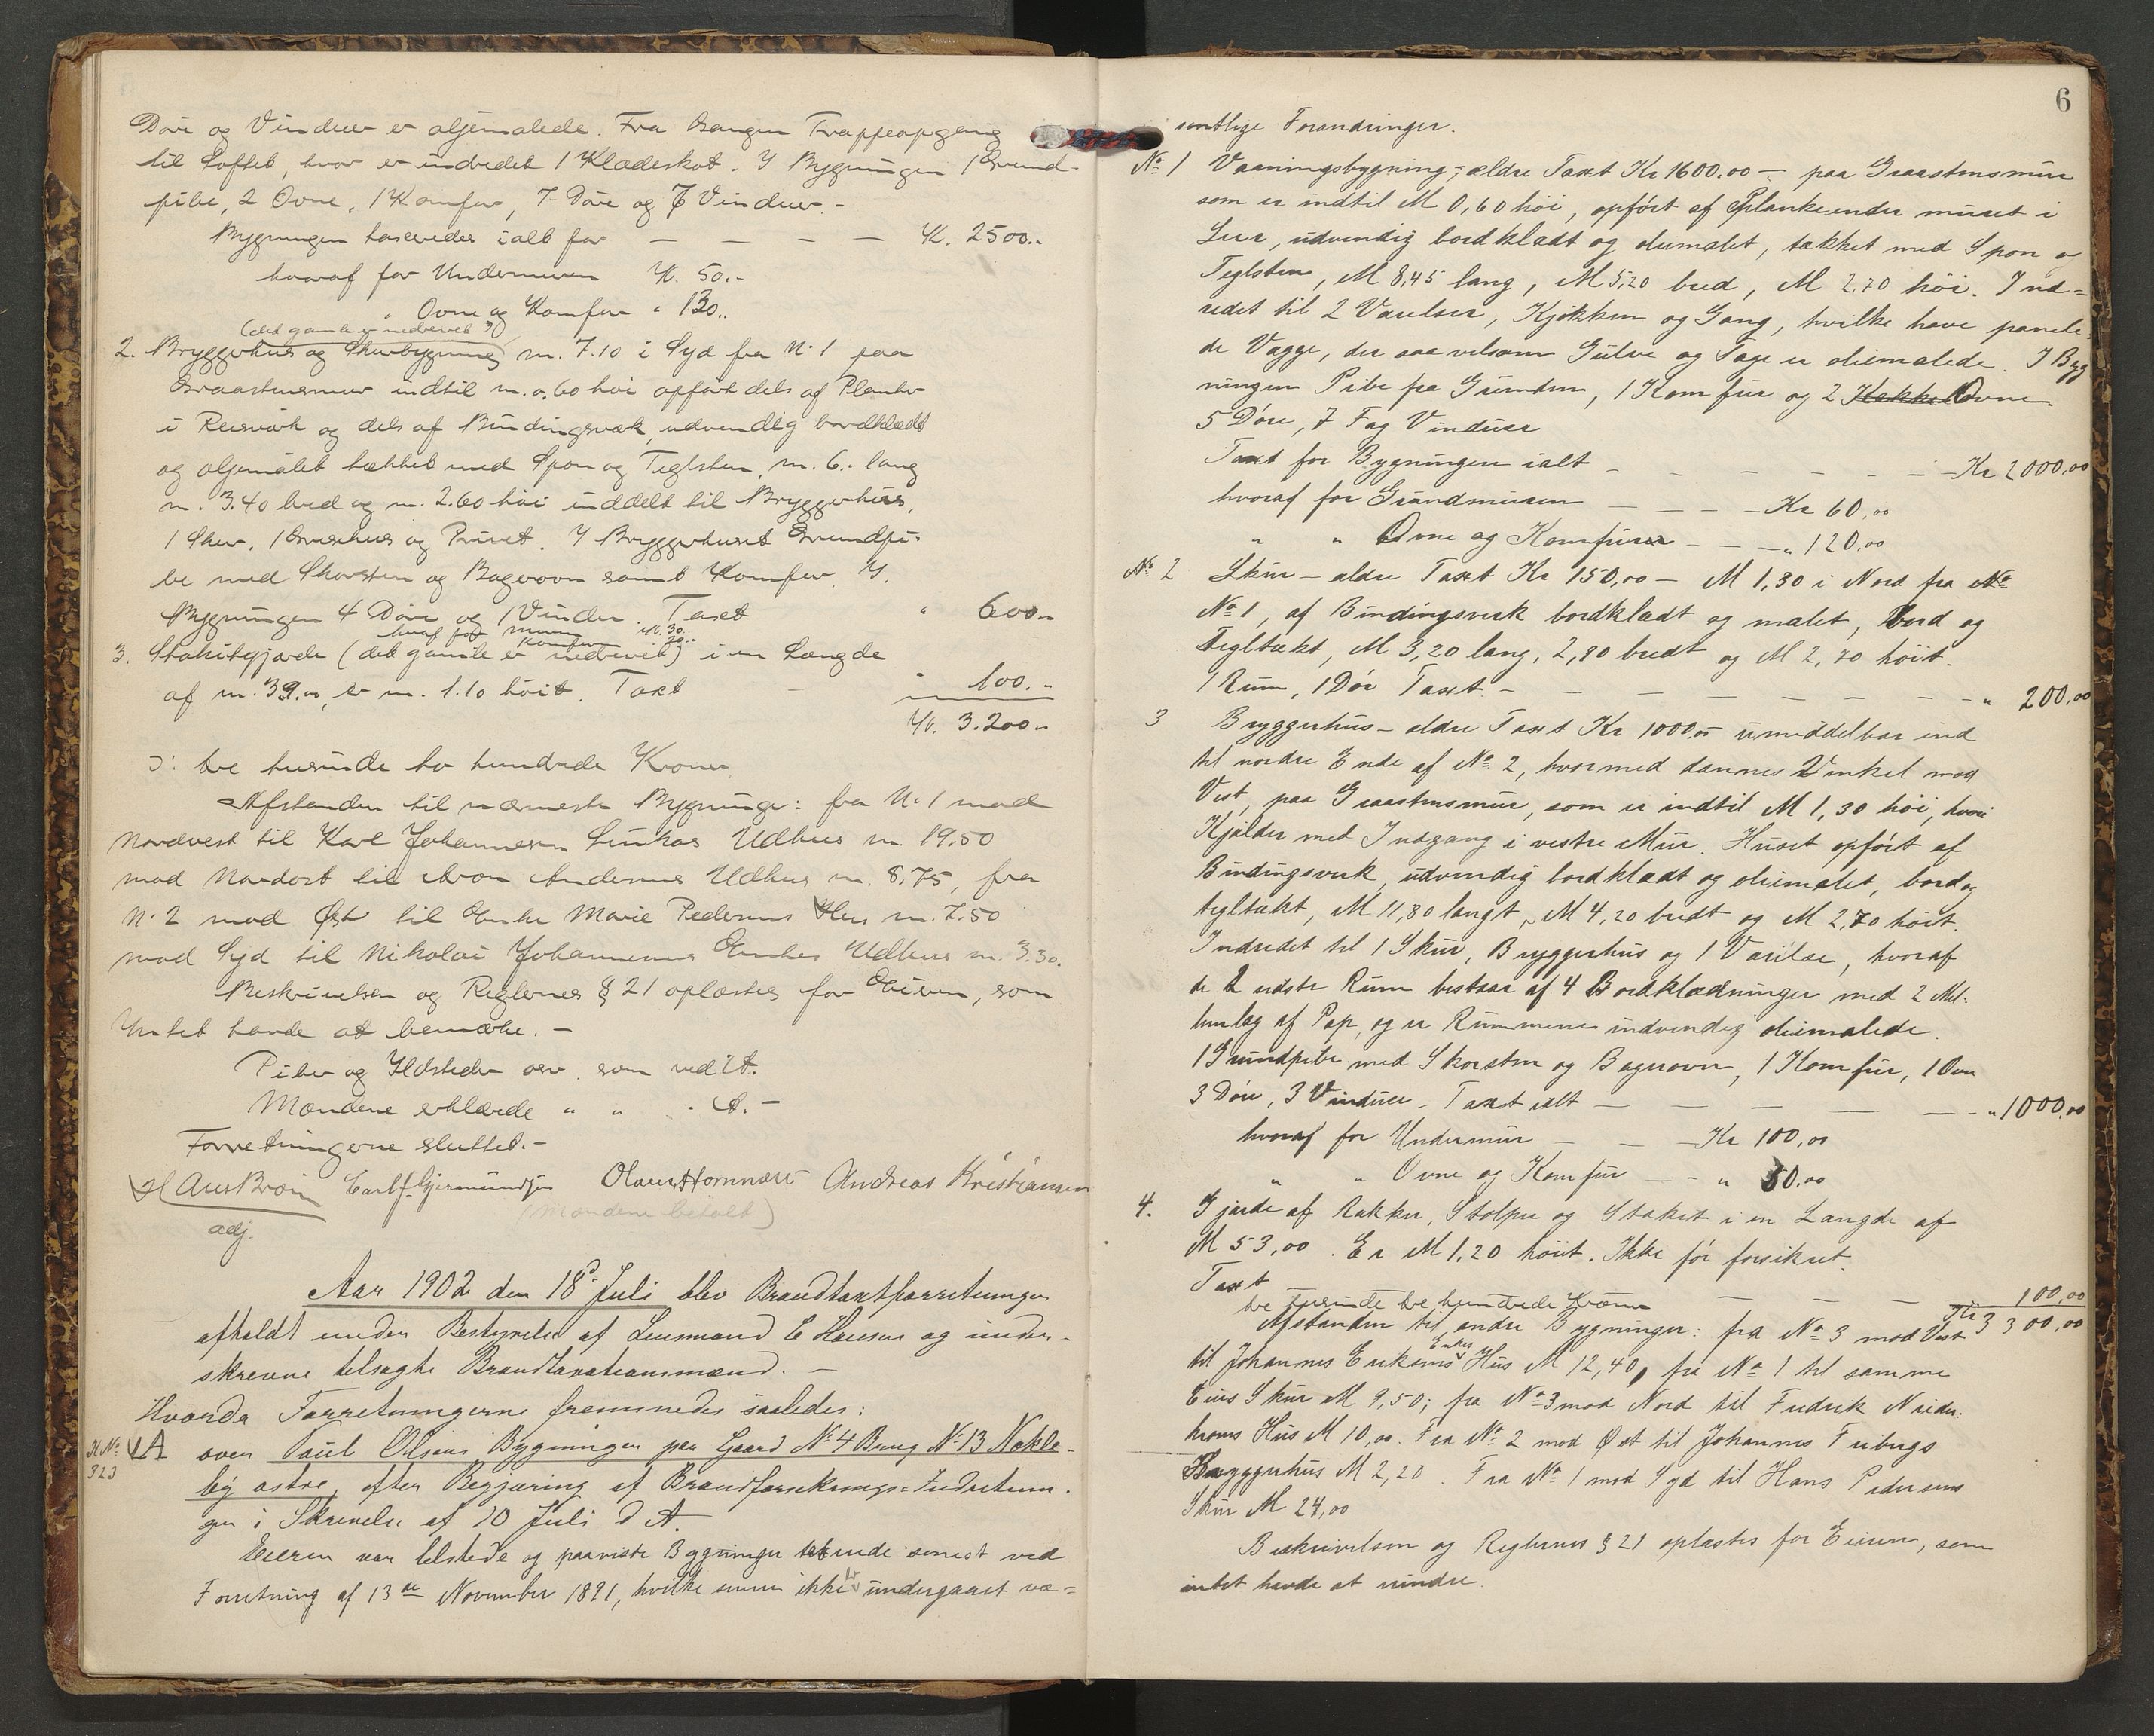 Døre og Vinduer er oljemalede. Fra Gangen Trappeopgang
til Loftet, hvor er indredet 1 Klædeskot. I Bygningen 1 Grund-
pibe, 2 Ovne, 1 Komfur, 7 Døre og 7 Vinduer.-
Bygningen taxeredes ialt for — — — — K. 2500..
hvoraf for Undermuren K. 50.-
" Ovne og Komfur " 130..
(det gamle er nedrevet)
2. Bryggerhus og Skurbygning m. 7.10 i Syd fra N. 1 paa
Graastensmur indtil m. 0.60 høi opført dels af Planker
i Reisværk og dels af Bindingsværk, udvendig bordklædt
og oljemalet tækket med Spon og Teglsten, m. 6.. lang
m. 3.40 bred og m. 2.60 høi inddelt til Bryggerhus,
1 Skur, 1 Grisehus og Privet. I Bryggerhuset Grundpi-
be med Skorsten og Bagerovn samt Komfur. I
Bygningen 4 Døre og 1 Vindu. Taxt " 600..
hvoraf for muren K. 30.
Komfuren 20..
3. Stakitgjærde (det gamle er nedrevet) i en Længde
af m. 39.00, er m. 1.10 høit. Taxt — " 100.-
Kr. 3.200..
ɔ: tre tusinde to hundrede Kroner.
Afstanden til nærmeste Bygninger: fra N. 1 mod
Nordvest til Karl Johannesen Linkas Udhus m. 19.50
mod Nordost til Aron Andersens Udhus m. 8.75, fra
N. 2 mod Øst til Enke Marie Pedersens Hus m. 7.50
mod Syd til Nikolai Johannesens Enkes Udhus m. 3.30.
Beskrivelsen og Reglernes § 21 oplæstes for Eieren, som
Intet havde at bemærke. -
Piber og Ildsteder osv. som ved Lit.
Mændene erklærede " " " A. -
Forretningerne sluttet. -
H Aus Broin Carl J. Gjermundsen Olaus Hornnæs Andreas Kristiansen
adj. (Mændene betalt)
Aar 1902 den 18d. Juli blev Brandtaxtforretninger
afholdt under Bestyrelse af Lensmand E Hansen og under-
skrevne tilsagte Brandtaxationsmænd. -
Hvorda Forretningerne fremmedes saaledes:
H.No 323 A over Paul Olsens Bygninger paa Gaard No 4 Brug No 13 Nøkle-
by østre, efter Begjæring af Brandforsikrings-Indretnin-
gen i Skrivelse af 10 Juli d A.
Eieren var tilstede og paaviste Bygninger taxerede senest ved
Forretning af 13de November 1891, hvilke siden ikke har undergaaet væ=
6
sentlige Forandringer.
No 1 Vaaningsbygning, - ældre Taxt Kr 1600.00 - paa Graastensmur
som er indtil M 0,60 høi, opført af Plankeender muret i
Leer, udvendig bordklædt og oliemalet, tækket med Spon og
Teglsten, M 8,45 lang, M 5,20 bred, M 2,70 høi. Ind=
redet til 2 Værelser, Kjøkken og Gang, hvilke have panele-
de Vægge, der saavelsom Gulve og Tage er oliemalede. I Byg
ningen Pibe fra Grunden, 1 Komfur og 2 Kakkel Ovne
5 Døre, 7 Fag Vinduer
Taxt for Bygningen ialt — — — — — — Kr 2000,00
hvoraf for Grundmuren — — — — Kr 60,00
" " Ovne og Komfurer — — — " 120,00
No 2 Skur - ældre Taxt Kr 150,00 - M 1,30 i Nord fra No
No 1, af Bindingsverk bordklædt og malet, bord og
tegltækt, M 3,20 lang, 2,80 bredt og M 2,70 høit.
1 Rum, 1 Dør Taxt — — — — — — — " 200,00
3 Bryggerhus - ældre Taxt Kr 1000.00 umiddelbar ind
til nordre Ende af No 2, hvormed dannes Vinkel mod
Vest, paa Graastensmur, som er indtil M 1,30 høi, hvori
Kjælder med Indgang i vestre Mur. Huset opført af
Bindingsverk, udvendig bordklædt og oliemalet, bord og
tegltækt, M 11,80 langt, M 4,20 bredt og M 2,70 høit.
Indredet til 1 Skur, Bryggerhus og 1 Værelse, hvoraf
de 2 sidste Rum bestaar af 4 Bordklædninger med 2 Mel-
lemlag af Pap, og er Rummene indvendig oliemalede.
1 Grundpibe med Skorsten og Bagerovn, 1 Komfur, 1 Ovn
3 Døre, 3 Vinduer - Taxt ialt — — — — — — " 1000,00
hvoraf for Undermur — — — Kr 100,00
" " Ovne og Komfur — — " 50,00
4. Gjærde af Rækker, Stolper og Staket i en Længde af
M 53,00. Er M 1,20 høit. Ikke før forsikret.
Taxt — — — — 100,00
tre tusinde tre hundrede Kroner Kr 3 300,00
Afstanden til andre Bygninger: fra No 3 mod Vest
til Johannes Eriksens Enkes Hus M 12,40, fra No 1 til samme
Eiers Skur M 9,50; fra No 3 mod Nord til Fredrik Neider-
kroens Hus M 10,00. Fra No 2 mod Øst til Johannes Fribergs
Bryggerhus M 2,20. Fra No 1 mod Syd til Hans Pedersens
Skur M 24,00
Beskrivelsen og Reglernes § 21 oplæstes for Eieren, som
intet havde at erindre.